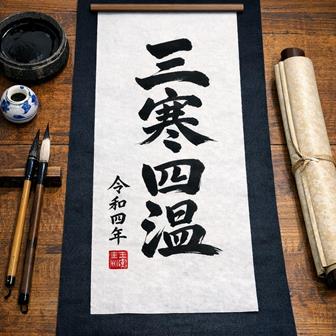 三寒四温
令和四年